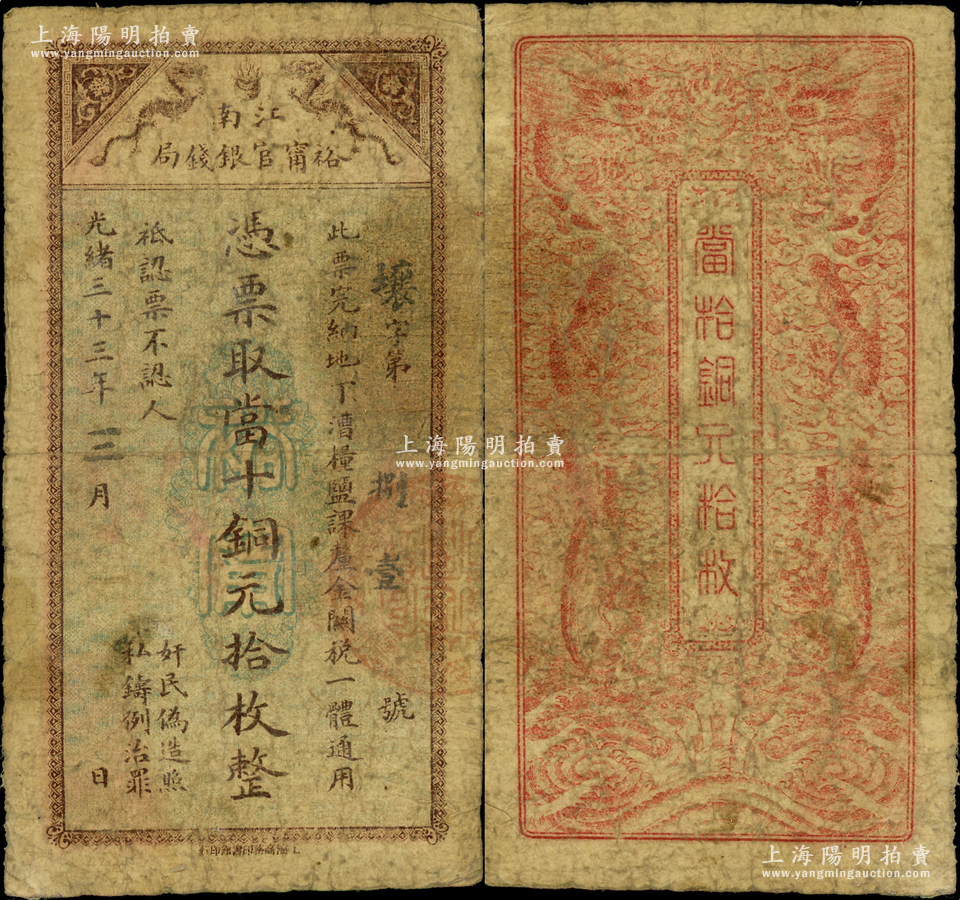 上海陽明拍賣
www.yangmingauction.com
江南
裕甯官銀錢局
壤字第 捌 壹 號
此票完納地丁漕糧鹽課厘金關稅一體通用
憑票取當十銅元拾枚整
祗認票不認人
奸民偽造照
私鑄例治罪
光緒三十三年 三 月 日
上海商務印書館印行
當拾銅元拾枚
上海陽明拍賣
www.yangmingauction.com
上海陽明拍賣
www.yangmingauction.com